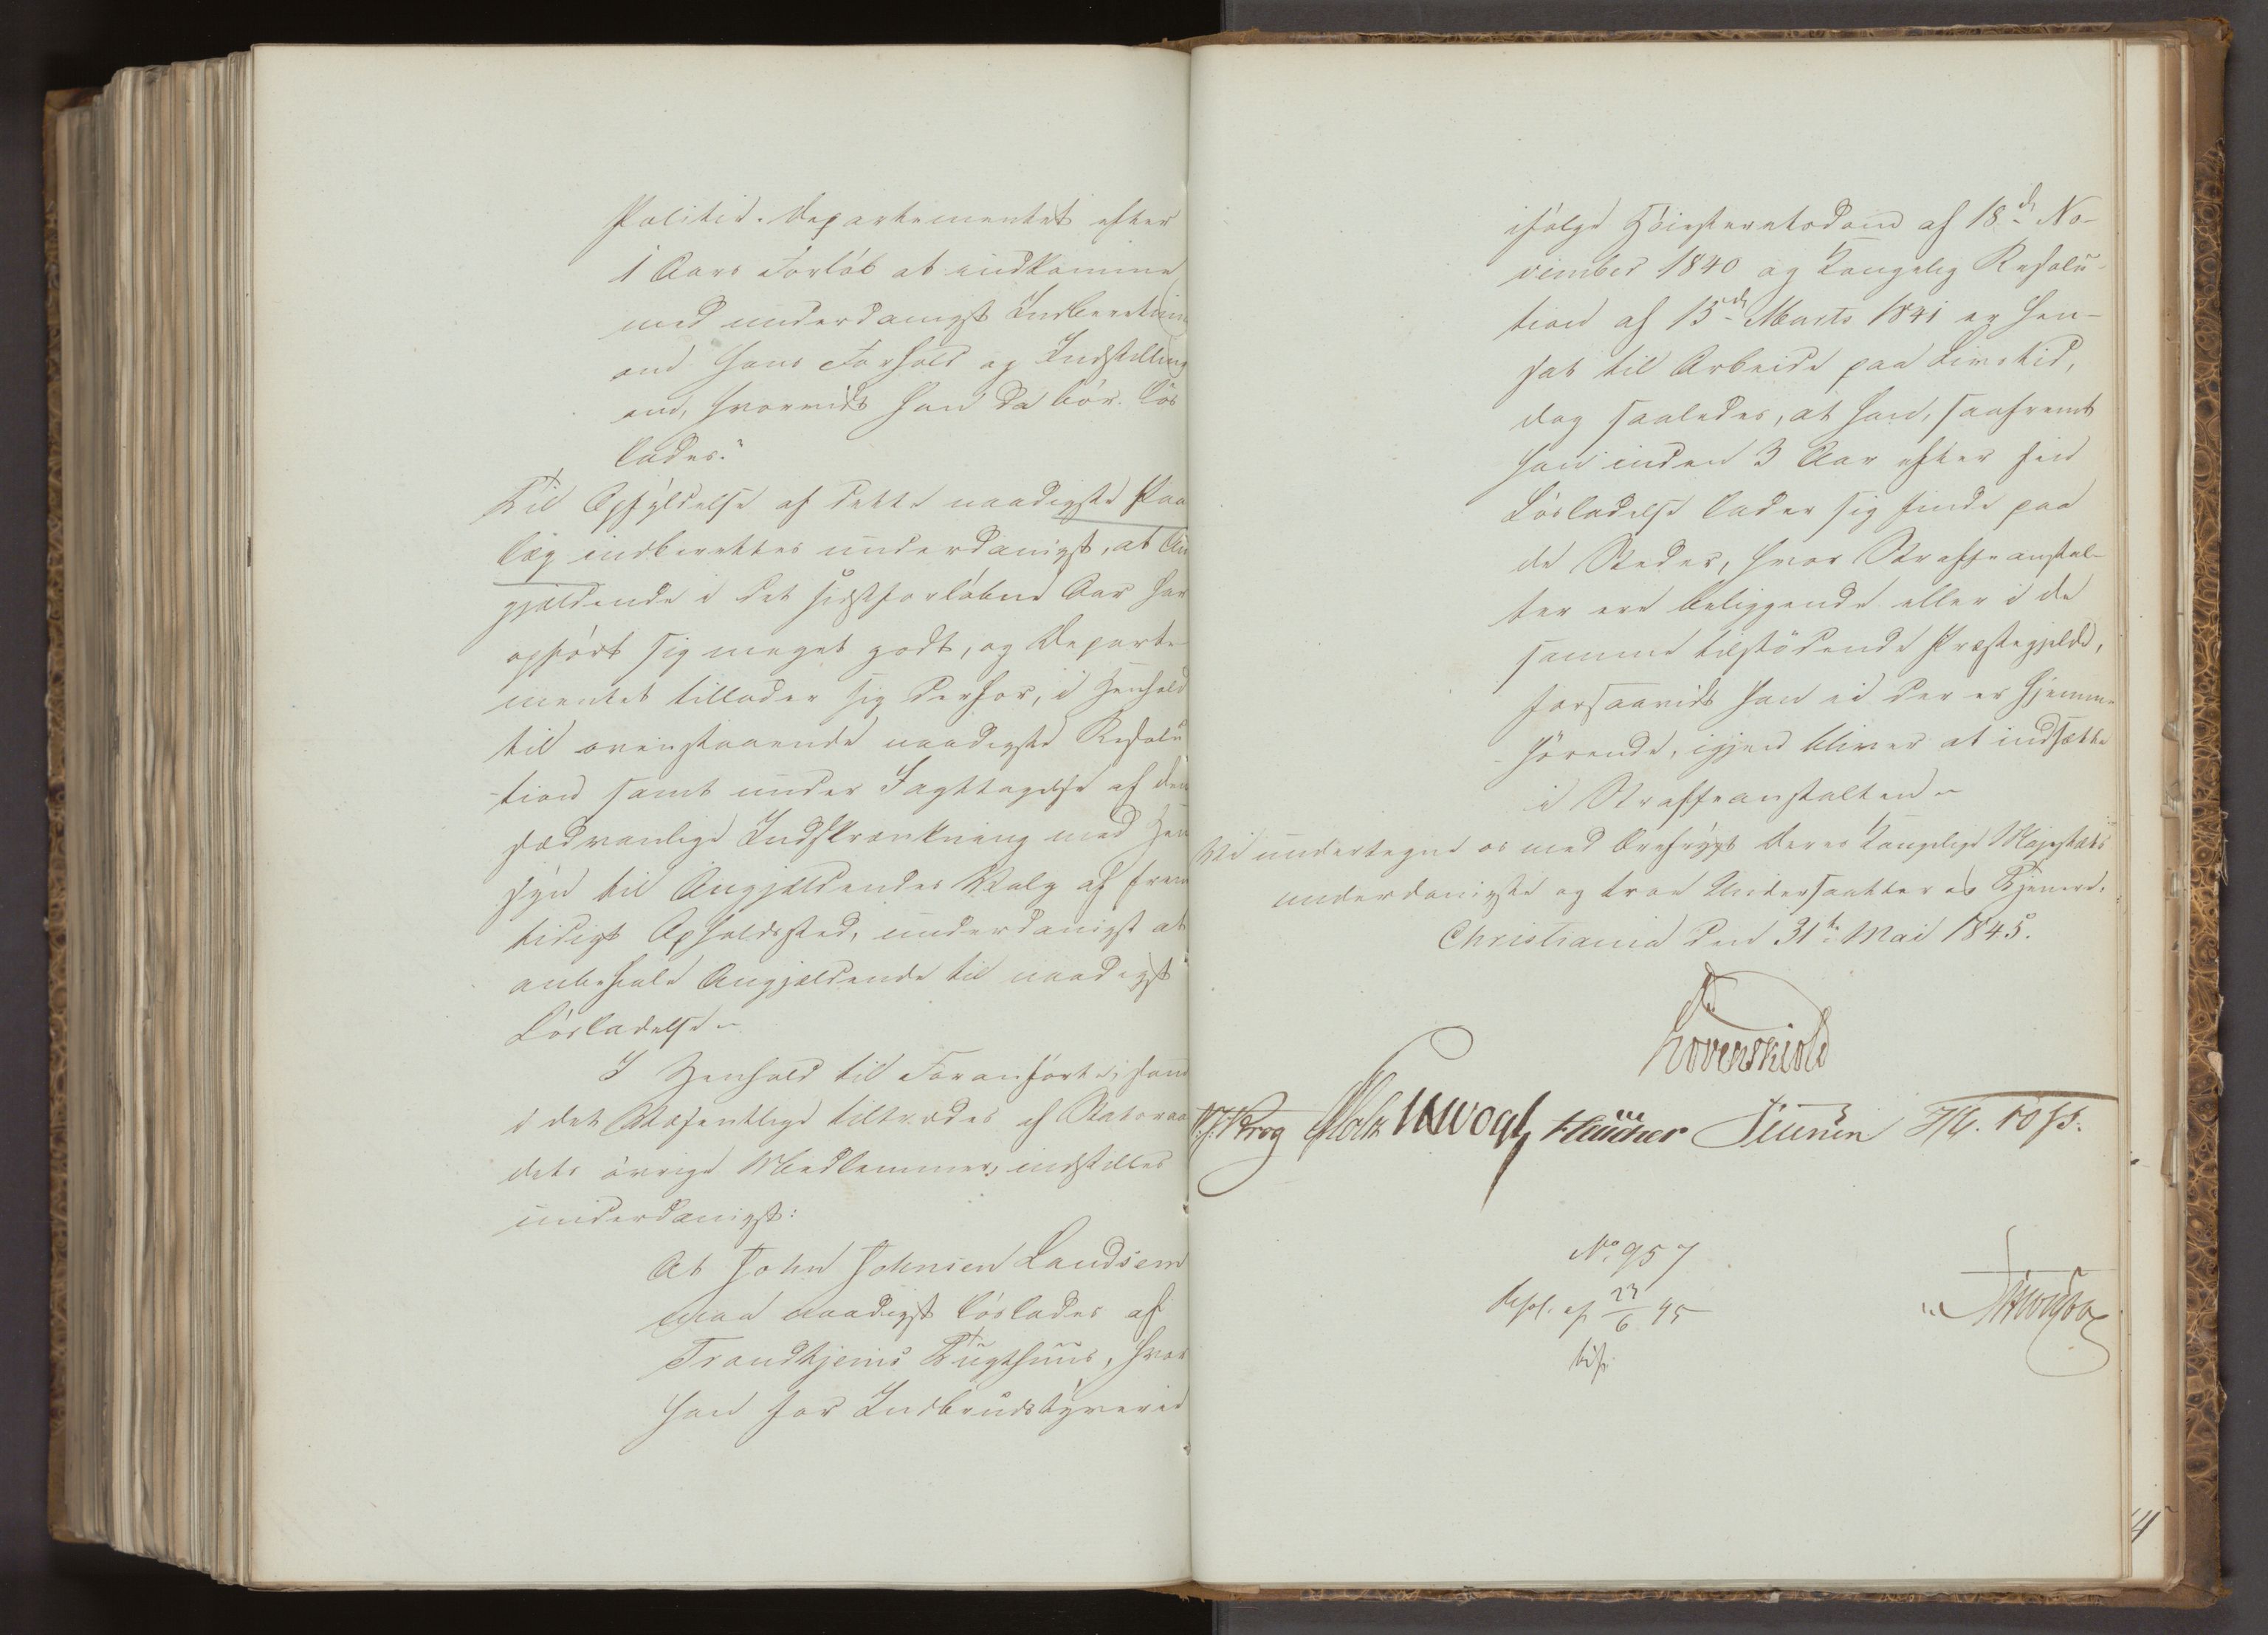 Politie-Departementet efter
1 Aars Forløb at indkomme
med underdanigst Indberetning
om hans Forhold og Indstilling
om, hvorvidt han da bør løs
lades."
Til Opfyldelse af dette naadigste Paa
læg indberettes underdanigst, at An
gjældende i det sidstforløbne Aar har
opført sig meget godt, og Departe
mentet tillader sig derfor, i Henhold
til ovenstaaende naadigste Resolu
tion samt under Iagttagelse af den
sædvanlige Indskrænkning med Hen
syn til Angjældendes Valg af frem
tidigt Opholdssted, underdanigst at
anbefale Angjældende til naadigst
Løsladelse.
I Henhold til Foranførte, som
i det Væsentlige tiltrædes af Statsraa
dets øvrige Medlemmer, indstilles
underdanigst:
At John Johnsen Landsem
maa naadigst løslades af
Trondhjems Tugthuus, hvor
han for Indbrudstyverie
ifølge Høiesteretsdom af 18de No-
vember 1840 og Kongelig Resolu-
tion af 15de Marts 1841 er hen-
sat til Arbeide paa Livstid,
dog saaledes, at han, saafremt
han inden 3 Aar efter sin
Løsladelse lader sig finde paa
de Steder, hvor Straffeanstal-
ter ere beliggende eller i de
samme tilstødende Præstegjelde,
forsaavidt han ei der er hjemme
hørende, igjen bliver at indsætte
i Straffeanstalten.
Vi undertegne os med Ærefrygt Deres Kongelige Majestæts
underdanigste og troe Undersaatter og Tjenere.
Christiania den 31te Mai 1845.
Løvenskiold
Krog Holst Vogt Fleischer Petersen
No 957
Resol. af 23/6 45